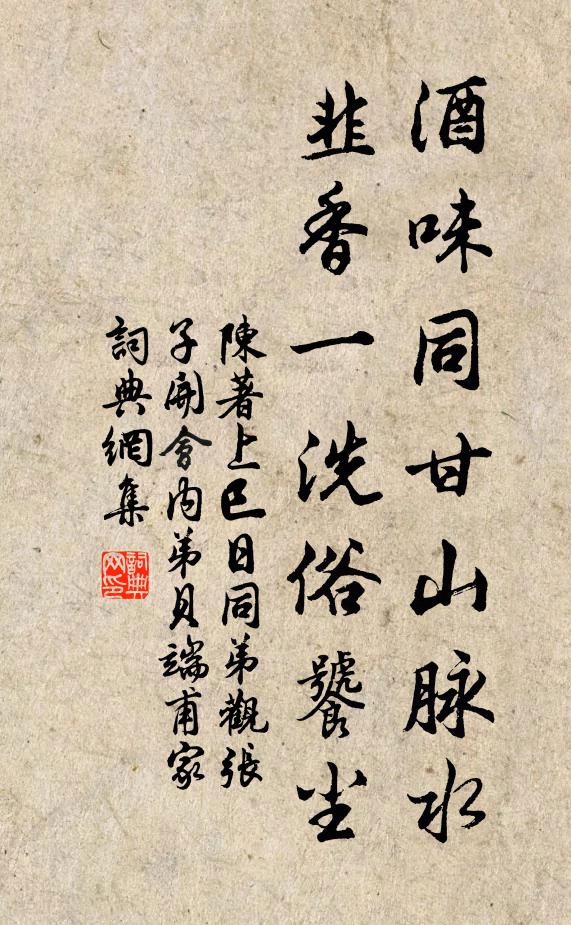 酒味同甘山脉水
韭香一洗俗饕尘
陳著上巳日同弟觀張
子開會内弟貝端甫家
詞典網集
詞典
网印